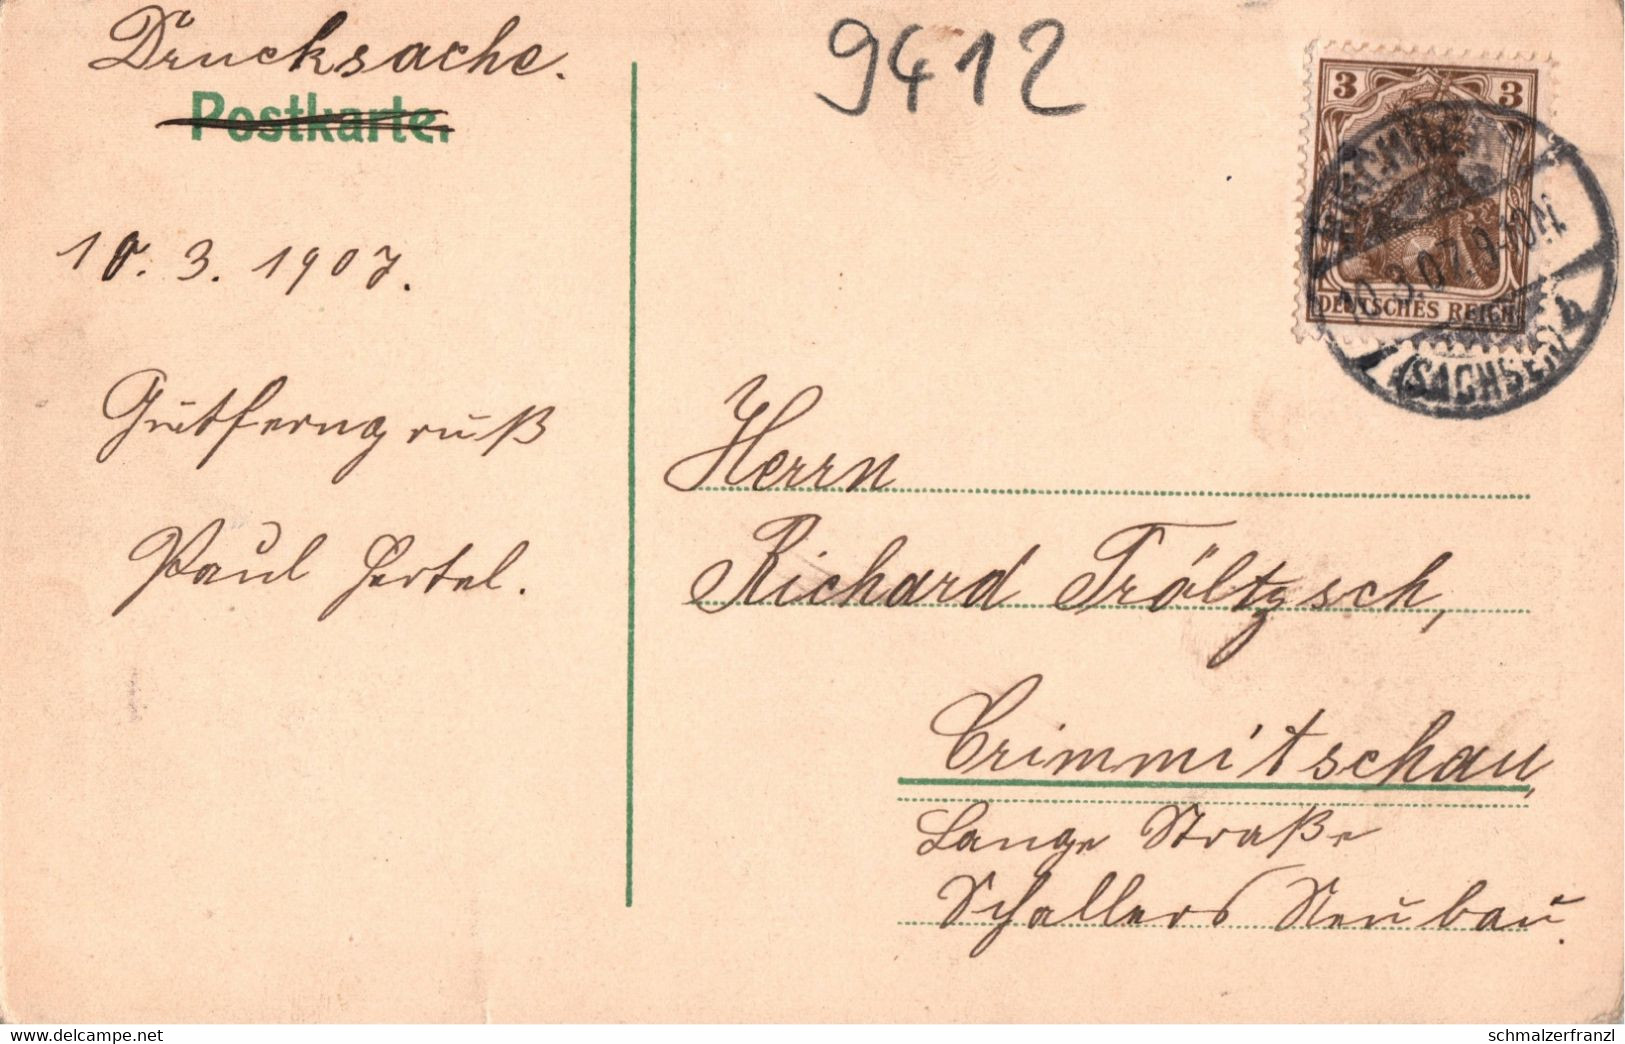 Drucksache.
Postkarte.
9412
10. 3. 1907.
Gutferngruß
Paul Hertel.
3 3
DEUTSCHES REICH
10.3.07. 9-10N.
(SACHSEN) b
Herrn
Richard Tröltzsch,
Crimmitschau,
Lange Straße
Schallers Neubau.
www.delcampe.net
schmalzerfranzl